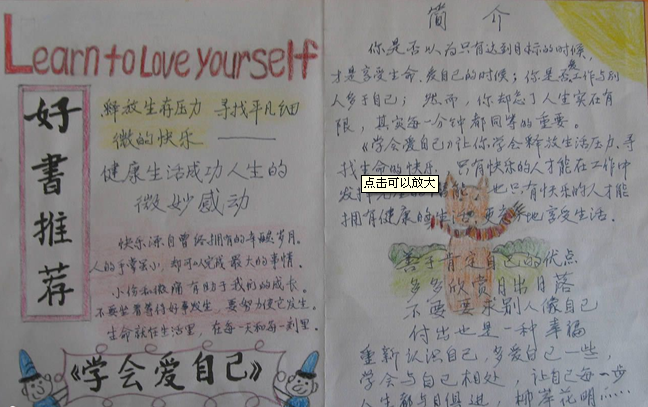 Learn to Love yourself
好書推荐
释放生存压力 寻找平凡细
微的快乐 ——
健康生活成功人生的
微妙感动
快乐源自曾经拥有的辛酸岁月。
人的手掌虽小,却可以完成最大的事情。
小伤和微痛有助于我们的成长。
不要坐着等待好事发生,要努力使它发生。
生命就在生活里,在每一天和每一刻里。
《学会爱自己》
简 介
你是否以为只有达到目标的时候,
才是享受生命、爱自己的时候;你是爱工作与别
人多于自己;然而,你却忘了人生实在有
限,其实每一分钟都同等的重要。
《学会爱自己》让你学会释放生活压力、寻
找生命的快乐 只有快乐的人才能在工作中
点击可以放大
发挥 也只有快乐的人才能
拥有健康的生活,更 地享受生活。
善于肯定自己的优点
多多欣赏月出日落
不要要求别人像自己
付出也是一种幸福
重新认识自己,多爱自己一些,
学会与自己相处,让自己每一步
人生都与日俱进,柳暗花明……